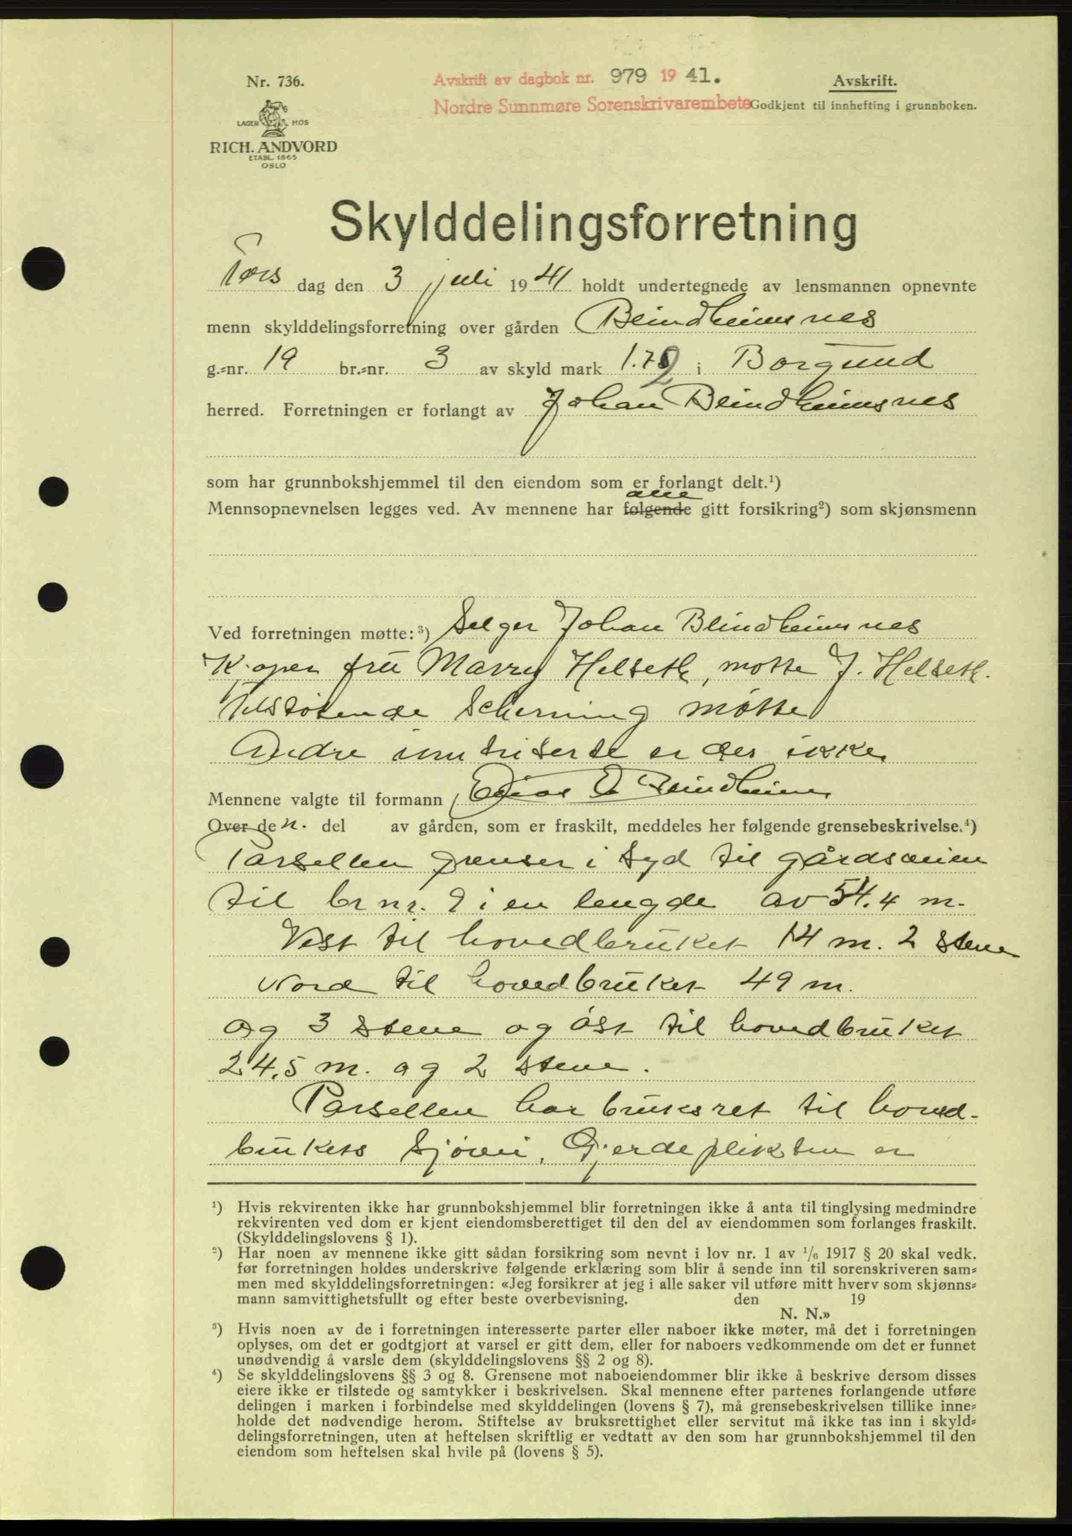 Nr. 736.
LAGER MOS
RICH. ANDVORD
ETABL. 1865
OSLO
Avskrift av dagbok nr. 979 1941.
Nordre Sunnmøre Sorenskrivarembete
Avskrift.
Godkjent til innhefting i grunnboken.
Skylddelingsforretning
Tors dag den 3 juli 1941 holdt undertegnede av lensmannen opnevnte
menn skylddelingsforretning over gården Blindheimsnes
g.-nr. 19 br.-nr. 3 av skyld mark 1.72 i Borgund
herred. Forretningen er forlangt av Johan Blindheimsnes
som har grunnbokshjemmel til den eiendom som er forlangt delt.¹)
alle
Mennsopnevnelsen legges ved. Av mennene har følgende gitt forsikring²) som skjønsmenn
Ved forretningen møtte:³) Selger Johan Blindheimsnes
Kjøper fru Marry Helseth, møtte J. Helseth.
Tilstøtende Scherning møtte
Andre inntriserte er der ikke
Mennene valgte til formann Elias O Blindheim
Over den. del av gården, som er fraskilt, meddeles her følgende grensebeskrivelse.⁴)
Parsellen grenser i Syd til gårdsveien
til br nr. 9 i en lengde av 54.4 m.
Vest til hovedbruket 14 m. 2 stene
Nord til hovedbruket 49 m.
og 3 stene og øst til hovedbruket
24,5 m. og 2 stene.
Parsellen har bruksret til hoved-
brukets Sjøvei. Gjerdeplikten er
¹) Hvis rekvirenten ikke har grunnbokshjemmel blir forretningen ikke å anta til tinglysing medmindre
rekvirenten ved dom er kjent eiendomsberettiget til den del av eiendommen som forlanges fraskilt.
(Skylddelingslovens § 1).
²) Har noen av mennene ikke gitt sådan forsikring som nevnt i lov nr. 1 av 1/6 1917 § 20 skal vedk.
før forretningen holdes underskrive følgende erklæring som blir å sende inn til sorenskriveren sam-
men med skylddelingsforretningen: «Jeg forsikrer at jeg i alle saker vil utføre mitt hverv som skjønns-
mann samvittighetsfullt og efter beste overbevisning. den 19
N. N.»
³) Hvis noen av de i forretningen interesserte parter eller naboer ikke møter, må det i forretningen
oplyses, om det er godtgjort at varsel er gitt dem, eller for naboers vedkommende om det er funnet
unødvendig å varsle dem (skylddelingslovens §§ 2 og 8).
⁴) Se skylddelingslovens §§ 3 og 8. Grensene mot naboeiendommer blir ikke å beskrive dersom disses
eiere ikke er tilstede og samtykker i beskrivelsen. Skal mennene efter partenes forlangende utføre
delingen i marken i forbindelse med skylddelingen (lovens § 7), må grensebeskrivelsen tillike inne-
holde det nødvendige herom. Stiftelse av bruksrettighet eller servitut må ikke tas inn i skyld-
delingsforretningen, uten at heftelsen skriftlig er vedtatt av den som har grunnbokshjemmel til den
eiendom som heftelsen skal hvile på (lovens § 5).